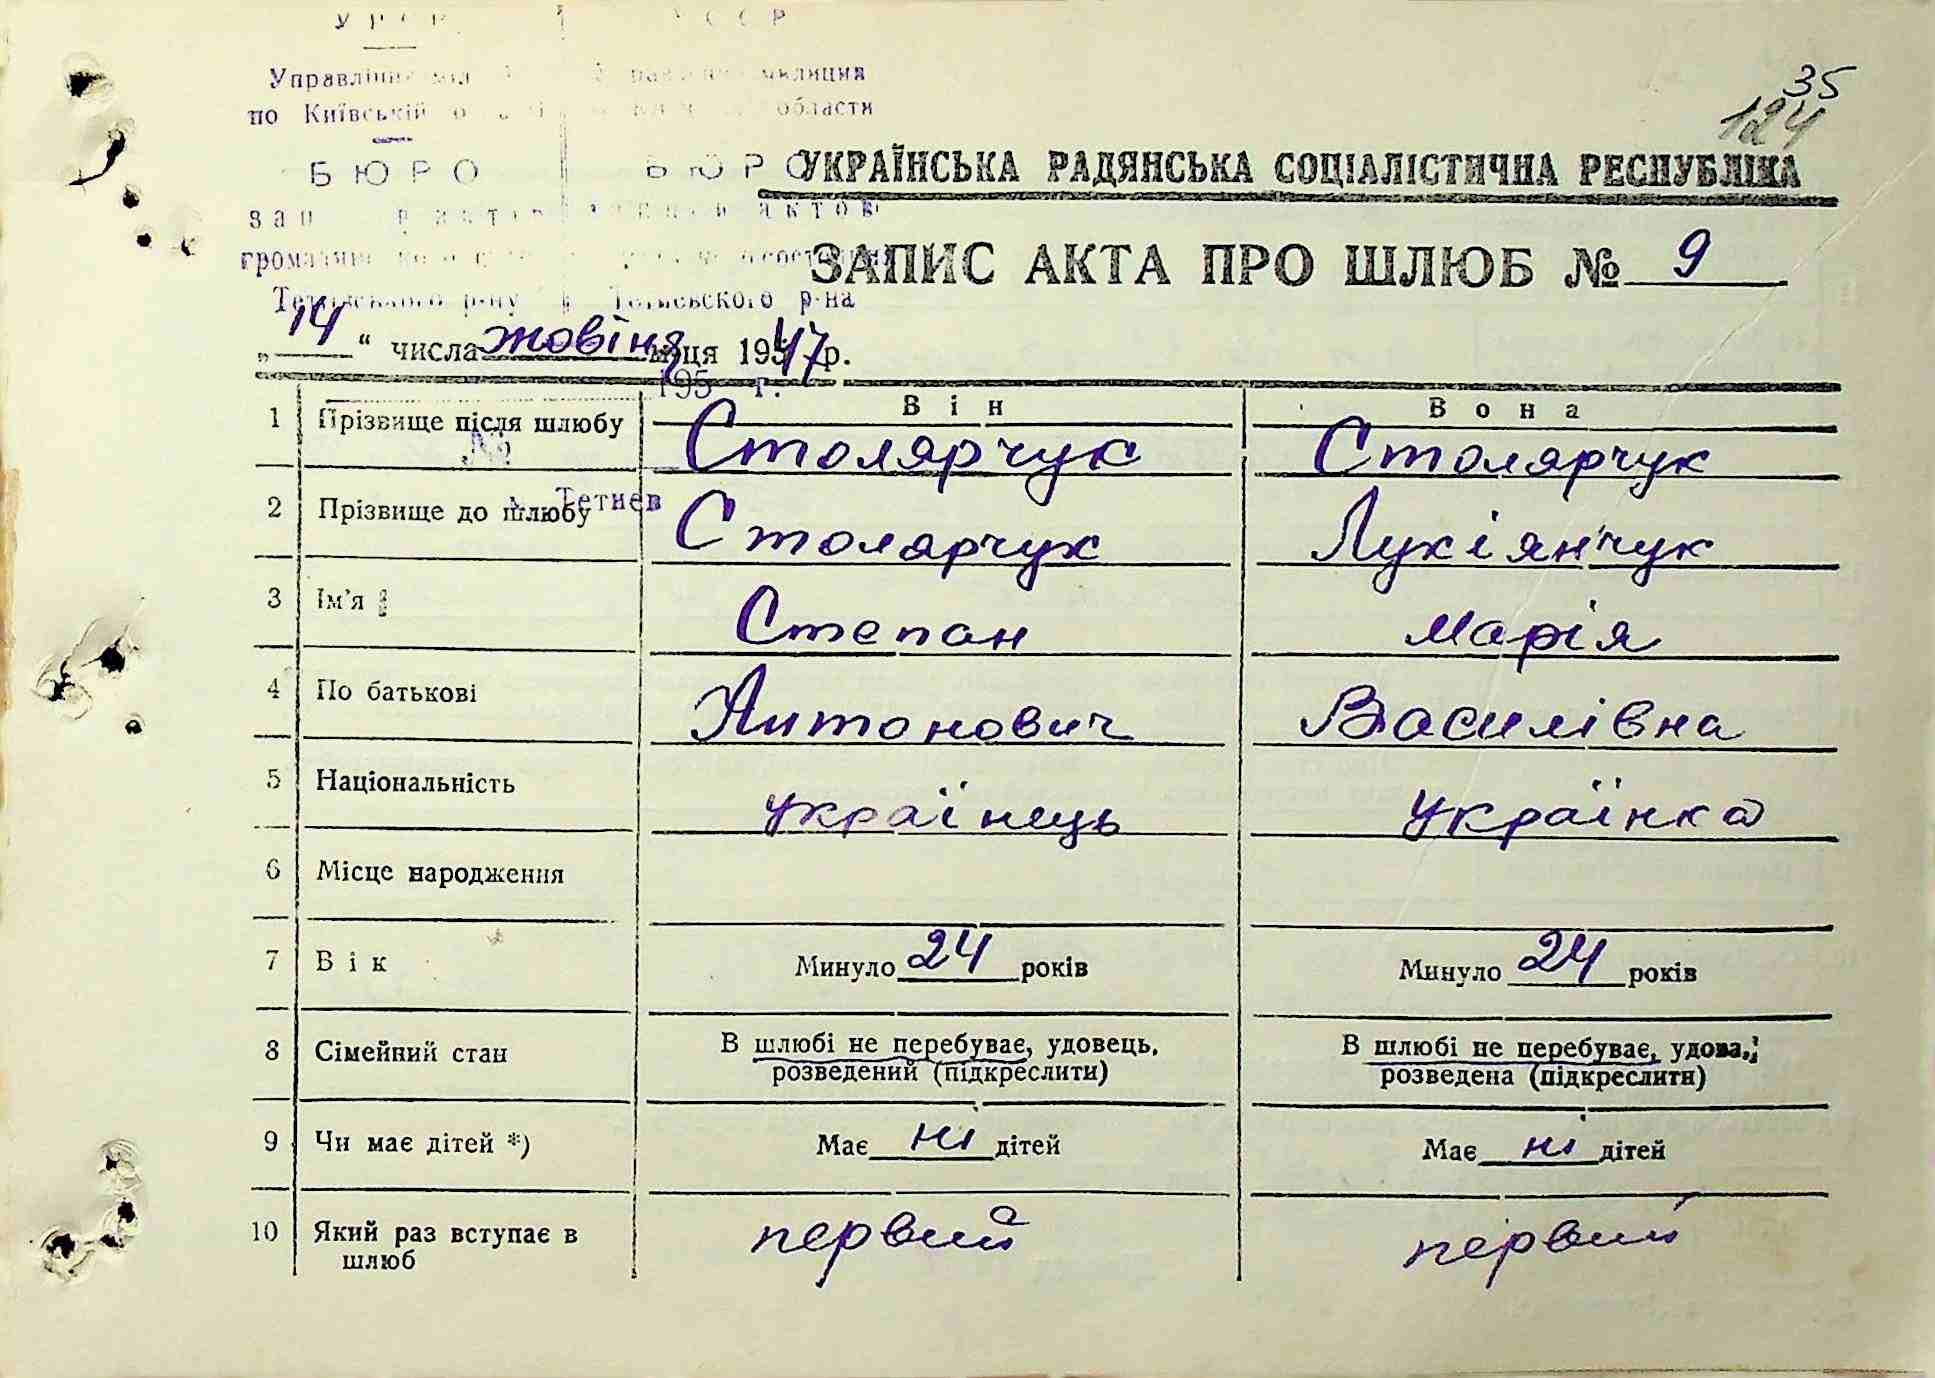 УРСР СССР
Управління милиция
по Київській области
БЮРО БЮРО
зап актов
Тетіївського р-ну Тетиевского р-на
35
124
УКРАЇНСЬКА РАДЯНСЬКА СОЦІАЛІСТИЧНА РЕСПУБЛІКА
ЗАПИС АКТА ПРО ШЛЮБ № 9
„14“ числа жовтня м-ця 1947 р.
195 г.
Він Вона
1 Прізвище після шлюбу Столярчук Столярчук
№
2 Прізвище до шлюбу Столярчук Лукіянчук
Тетиев
3 Ім'я Степан Марія
4 По батькові Антонович Василівна
5 Національність українець українка
6 Місце народження
7 Вік Минуло 24 років Минуло 24 років
8 Сімейний стан В шлюбі не перебуває, удовець, В шлюбі не перебуває, удова,
розведений (підкреслити) розведена (підкреслити)
9 Чи має дітей *) Має ні дітей Має ні дітей
10 Який раз вступає в первий первий
шлюб